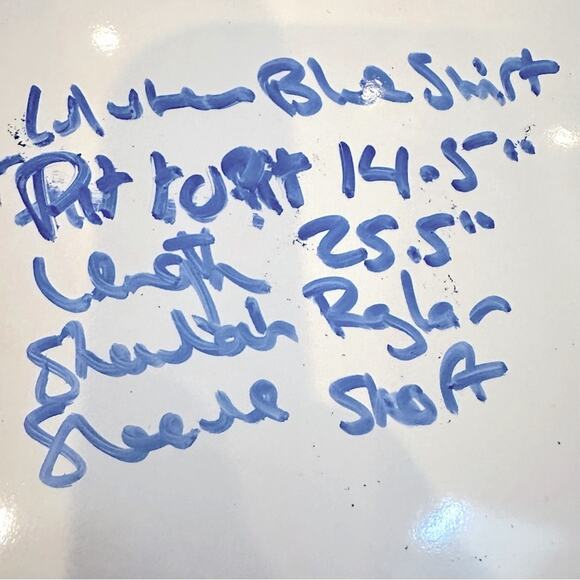 Lululemon Blue Shirt
Pit to Pit 14.5"
Length 25.5"
Shoulder Raglan
Sleeve Short